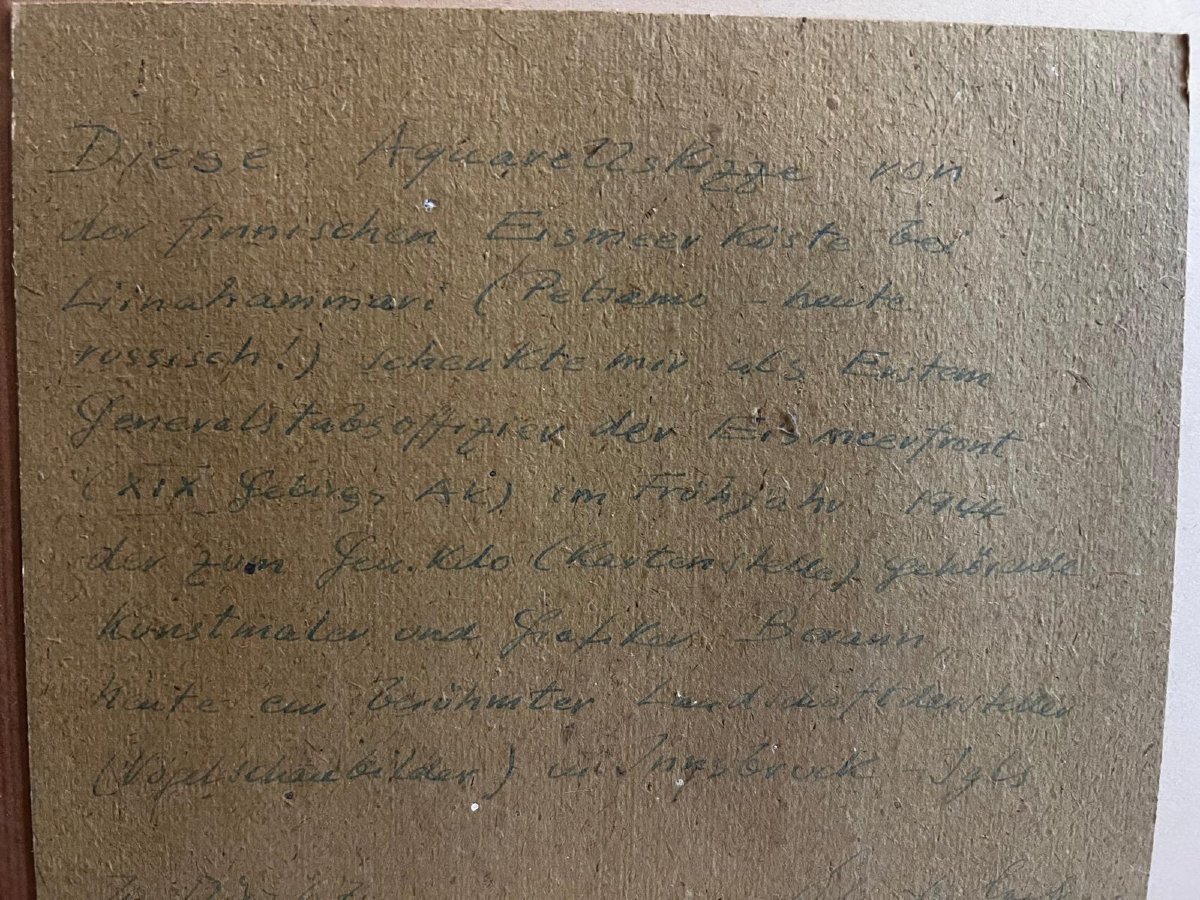 Diese Aquarellskizze von
der finnischen Eismeerküste bei
Liinahammari (Petsamo - heute
russisch!) schenkte mir als Ersten
Generalstabsoffizier der Eismeerfront
(XIX Gebirgs AK) im Frühjahr 1944
der zum Gen. Kdo (Kartenstelle) gehörende
Kunstmaler und Grafiker Berann,
heute ein berühmter Landschaftdarsteller
(Vogelschaubilder) in Innsbruck - Igls